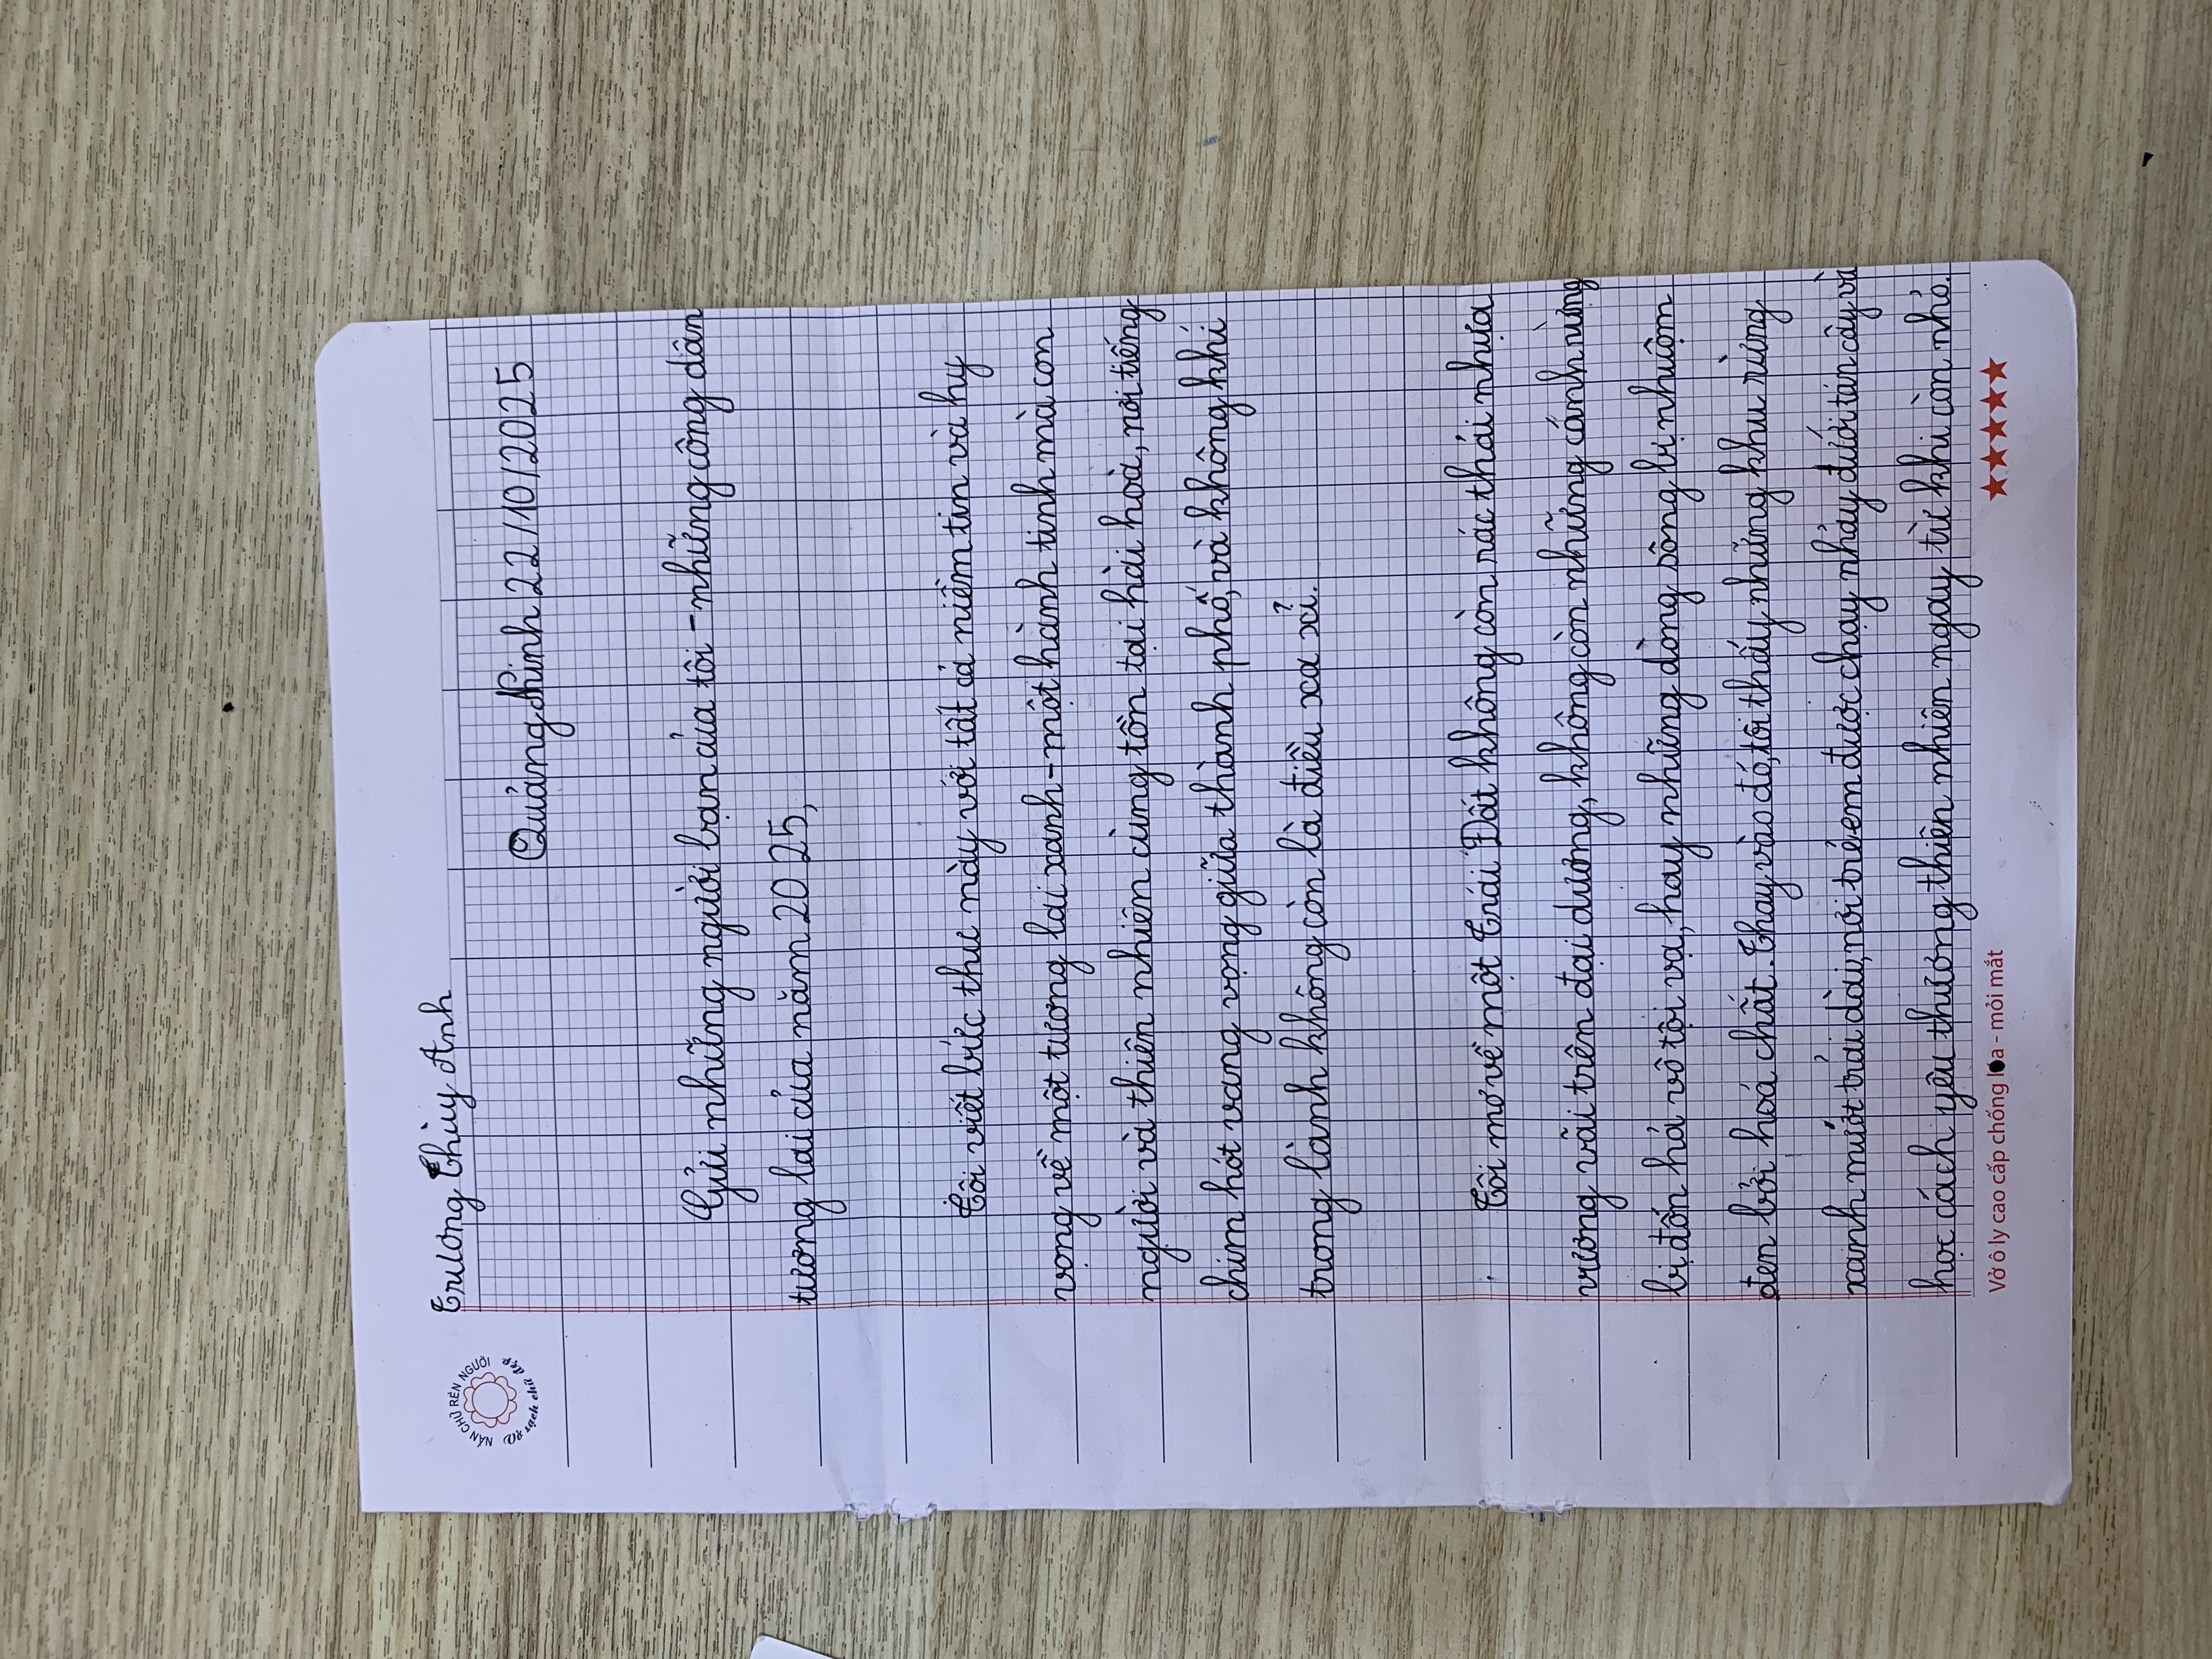 NẮN CHỮ RÈN NGƯỜI
Vở sạch chữ đẹp
Trương Thùy Anh
Quảng Ninh 22/10/2025
Gửi những người bạn của tôi - những công dân
tương lai của năm 2025,
Tôi viết bức thư này với tất cả niềm tin và hy
vọng về một tương lai xanh - một hành tinh mà con
người và thiên nhiên cùng tồn tại hài hoà, nơi tiếng
chim hót vang vọng giữa thành phố, và không khí
trong lành không còn là điều xa xỉ.
Tôi mơ về một Trái Đất không còn rác thải nhựa
vương vãi trên đại dương, không còn những cánh rừng
bị đốn hạ vô tội vạ, hay những dòng sông bị nhuộm
đen bởi hoá chất. Thay vào đó, tôi thấy những khu rừng
xanh mướt trải dài, nơi trẻ em được chạy nhảy dưới tán cây và
học cách yêu thương thiên nhiên ngay từ khi còn nhỏ.
Vở ô ly cao cấp chống lóa - mỏi mắt